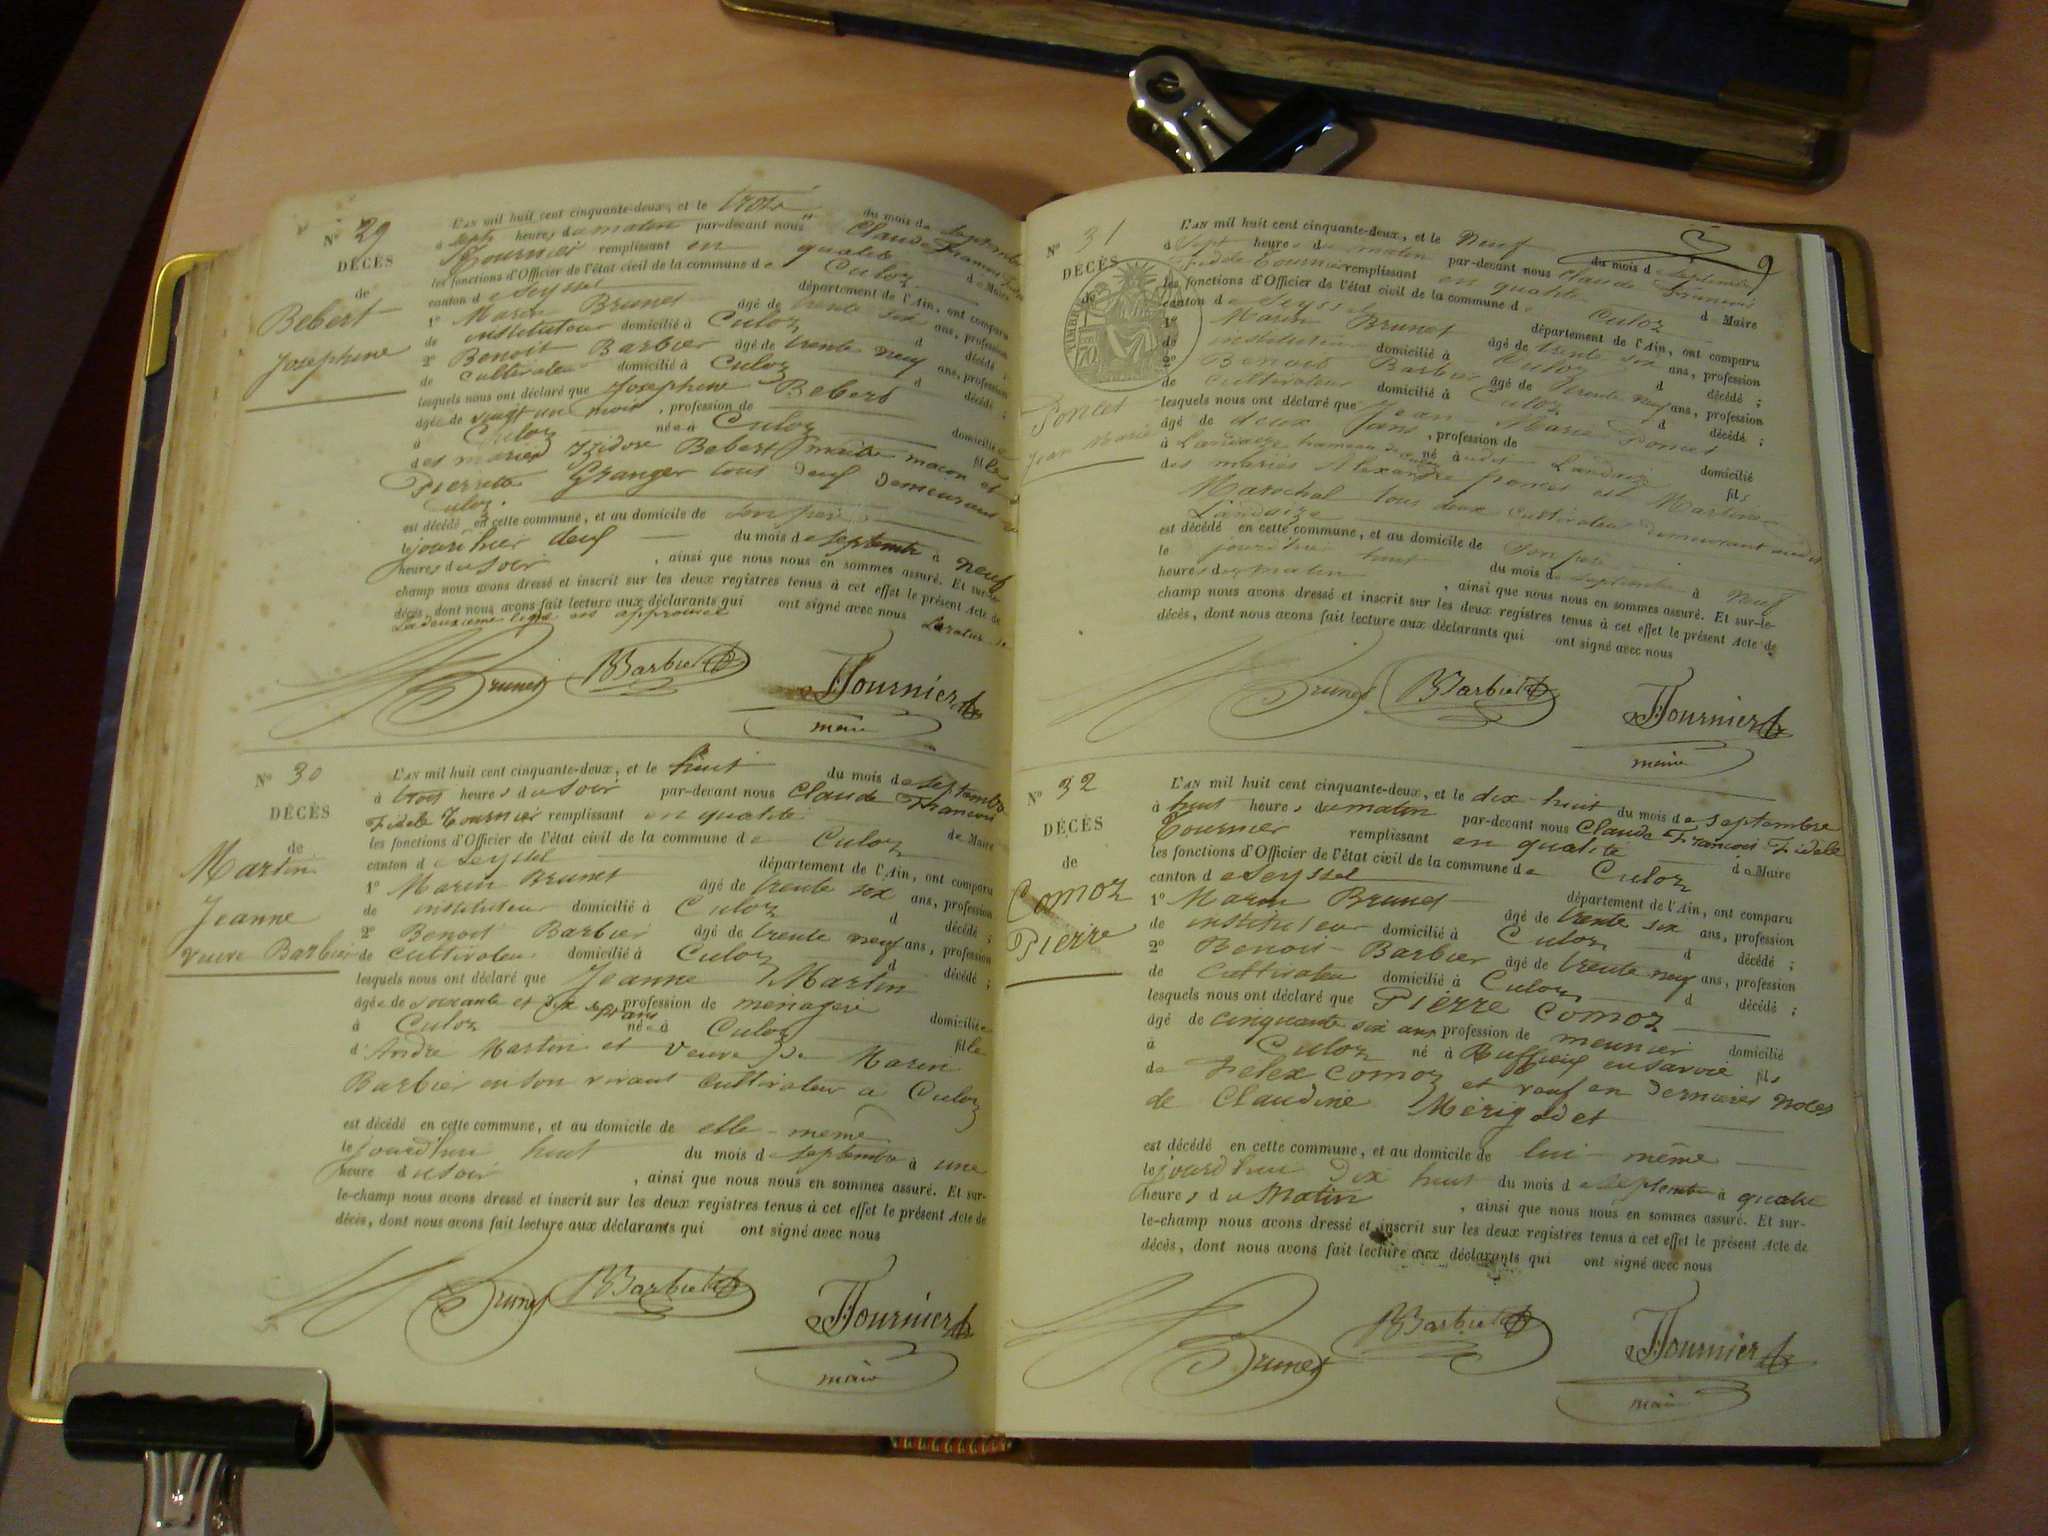 N° 29
DÉCÈS
de
Bebert
Josephine
L'AN mil huit cent cinquante-deux, et le trois du mois de septembre
à sept heures du matin par-devant nous Claude François
Tournier remplissant en qualité d e Maire
les fonctions d'Officier de l'état civil de la commune de Culoz
canton de Seyssel département de l'Ain, ont comparu
1° Marin Brunet âgé de trente six ans, profession
de instituteur domicilié à Culoz d décédé ;
2° Benoit Barbier âgé de trente neuf ans, profession
de cultivateur domicilié à Culoz d décédé ;
lesquels nous ont déclaré que Josephine Bebert
âgée de vingt un mois, profession de domiciliée
à Culoz née à Culoz fille
des mariés Izidore Bebert maitre maçon et
Pierrette Granger tous deux demeurant à
Culoz.
est décédé en cette commune, et au domicile de son père
le jourd'hier deux du mois de septembre à neuf
heures du soir, ainsi que nous nous en sommes assuré. Et sur-le-
champ nous avons dressé et inscrit sur les deux registres tenus à cet effet le présent Acte de
décès, dont nous avons fait lecture aux déclarants qui ont signé avec nous
La deuxieme ligne est approuvée
Brunet BBarbier Tournier
maire
N° 30
DÉCÈS
de
Martin
Jeanne
veuve Barbier
L'AN mil huit cent cinquante-deux, et le huit du mois de septembre
à trois heures du soir par-devant nous Claude François
Fidele Tournier remplissant en qualité de Maire
les fonctions d'Officier de l'état civil de la commune de Culoz
canton de Seyssel département de l'Ain, ont comparu
1° Marin Brunet âgé de trente six ans, profession
de instituteur domicilié à Culoz d décédé ;
2° Benoit Barbier âgé de trente neuf ans, profession
de cultivateur domicilié à Culoz d décédé ;
lesquels nous ont déclaré que Jeanne Martin
âgée de soixante et dix sept ans profession de menagere domiciliée
à Culoz née à Culoz fille
d'André Martin et veuve de Marin
Barbier en son vivant cultivateur a Culoz
est décédé en cette commune, et au domicile de elle-meme
le jourd'hui huit du mois de septembre à une
heure du soir, ainsi que nous nous en sommes assuré. Et sur-
le-champ nous avons dressé et inscrit sur les deux registres tenus à cet effet le présent Acte de
décès, dont nous avons fait lecture aux déclarants qui ont signé avec nous
Brunet BBarbier Tournier
maire
9
N° 31
DÉCÈS
de
TIMBRE
Poncet
Jean Marie
L'AN mil huit cent cinquante-deux, et le neuf du mois de septembre
à sept heures du matin par-devant nous Claude François
Fidele Tournier remplissant en qualité d e Maire
les fonctions d'Officier de l'état civil de la commune de Culoz
canton de Seyssel département de l'Ain, ont comparu
1° Marin Brunet âgé de trente six ans, profession
de instituteur domicilié à Culoz d décédé ;
2° Benoit Barbier âgé de trente neuf ans, profession
de cultivateur domicilié à Culoz d décédé ;
lesquels nous ont déclaré que Jean Marie Poncet
âgé de deux ans, profession de domicilié
à Landaize hameau de Culoz né audit Landaize fils
des mariés Alexandre Poncet et Martine
Marechal tous deux cultivateurs demeurant audit
Landaize
est décédé en cette commune, et au domicile de son père
le jourd'hier huit du mois de septembre à neuf
heures du matin, ainsi que nous nous en sommes assuré. Et sur-le-
champ nous avons dressé et inscrit sur les deux registres tenus à cet effet le présent Acte de
décès, dont nous avons fait lecture aux déclarants qui ont signé avec nous
Brunet BBarbier Tournier
maire
N° 32
DÉCÈS
de
Comoz
Pierre
L'AN mil huit cent cinquante-deux, et le dix-huit du mois de septembre
à huit heures du matin par-devant nous Claude François Fidele
Tournier remplissant en qualité d e Maire
les fonctions d'Officier de l'état civil de la commune de Culoz
canton de Seyssel département de l'Ain, ont comparu
1° Marin Brunet âgé de trente six ans, profession
de instituteur domicilié à Culoz d décédé ;
2° Benoit Barbier âgé de trente neuf ans, profession
de cultivateur domicilié à Culoz d décédé ;
lesquels nous ont déclaré que Pierre Comoz
âgé de cinquante six ans, profession de meunier domicilié
à Culoz né à Ruffieux en Savoie fils
de Felex Comoz et veuf en dernieres noces
de Claudine Mérigodet
est décédé en cette commune, et au domicile de lui-même
le jourd'hui dix huit du mois de septembre à quatre
heures du matin, ainsi que nous nous en sommes assuré. Et sur-
le-champ nous avons dressé et inscrit sur les deux registres tenus à cet effet le présent Acte de
décès, dont nous avons fait lecture aux déclarants qui ont signé avec nous
Brunet BBarbier Tournier
maire